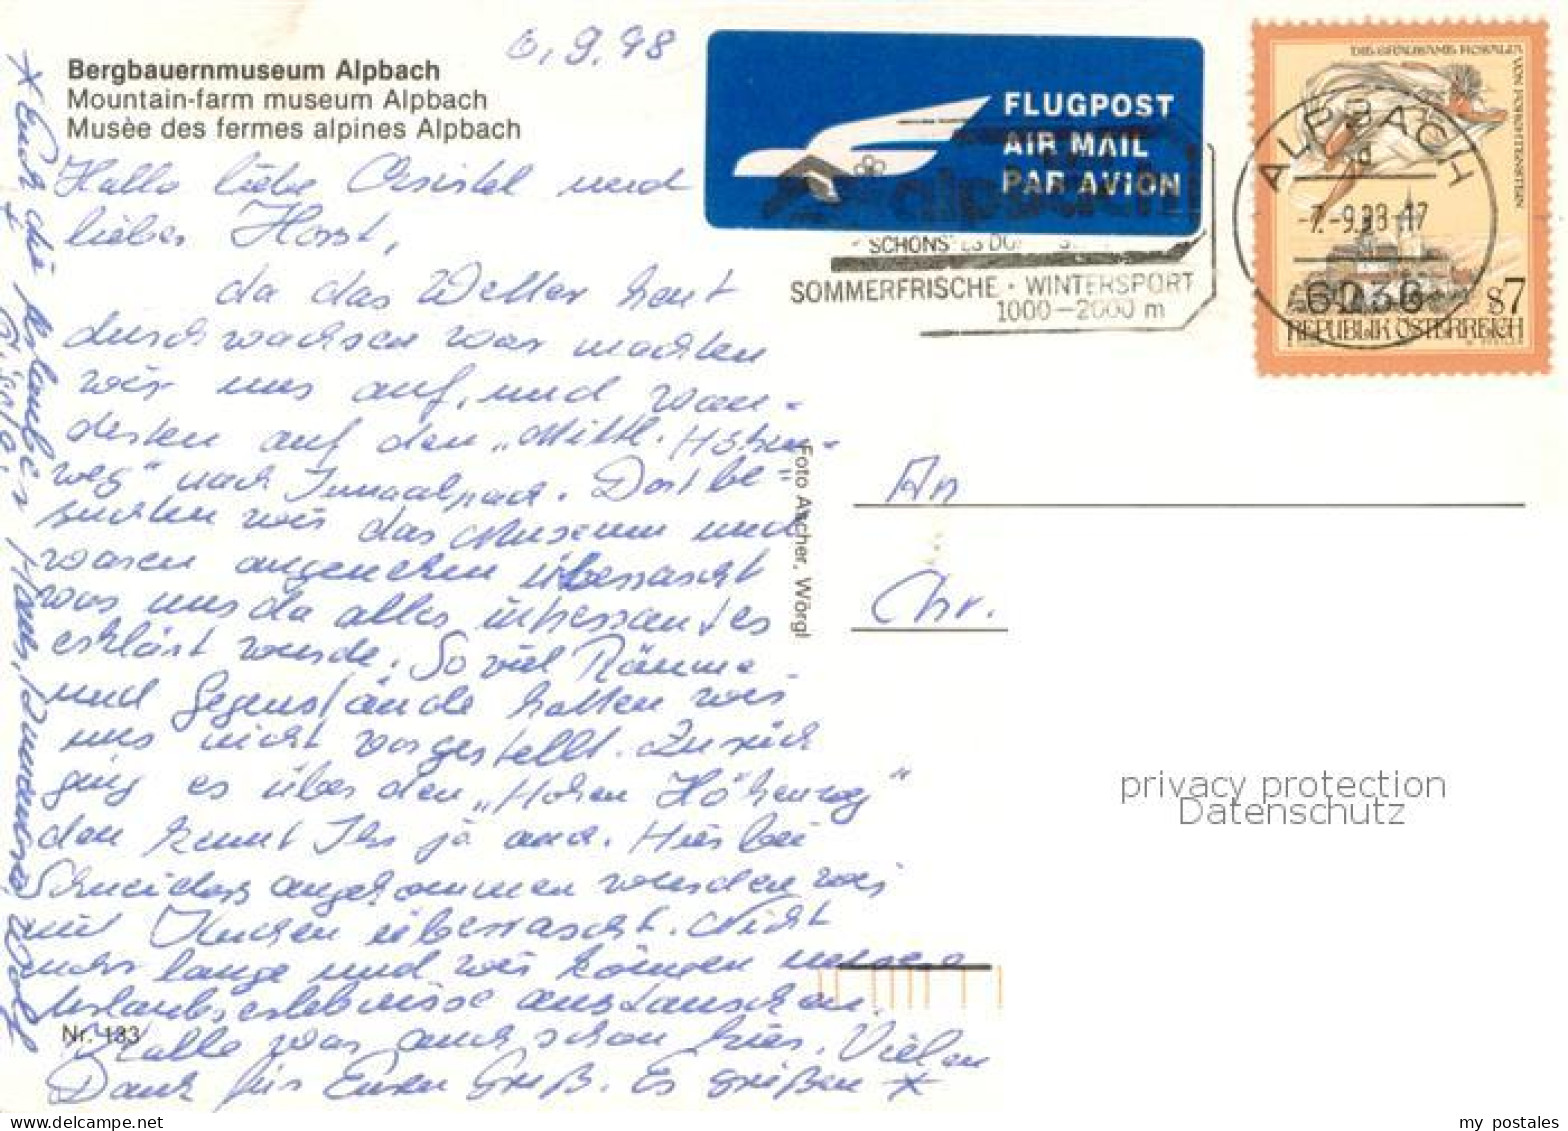 6.9.98
Bergbauernmuseum Alpbach
Mountain-farm museum Alpbach
Musèe des fermes alpines Alpbach
Hallo liebe Christel und
lieber Horst,
da das Wetter heut
durchwachsen war machten
wir uns auf, und wan-
derten auf den „Mittl. Höhen-
weg" nach Inneralpach. Dort be
suchten wir das Museum und
waren angenehm überrascht
was uns da alles interessantes
erklärt wurde. So viel Räume
und Gegenstände hatten wir
uns nicht vorgestellt. Zurück
ging es über den „Hohen Höhenweg"
den kennt Ihr ja auch. Hier bei
Schneiders angekommen wurden wir
mit Kuchen überrascht. Nicht
mehr lange und wir können unsere
Urlaubserlebnisse austauschen.
Kalle war auch schon hier. Vielen
Dank für Euren Gruß. Es grüßen *
* Euch die Urlauber Hans,
Gisela,
Nr. 133
Foto Ascher, Wörgl
FLUGPOST
AIR MAIL
PAR AVION
alpbach
SCHÖNSTES DORF
SOMMERFRISCHE · WINTERSPORT
1000–2000 m
ALPBACH
-7.-9.98-17
6236
DIE GRAUSAME ROSALIA VON FORCHTENSTEIN
S7
REPUBLIK ÖSTERREICH
An
Chr.
privacy protection
Datenschutz
my postales